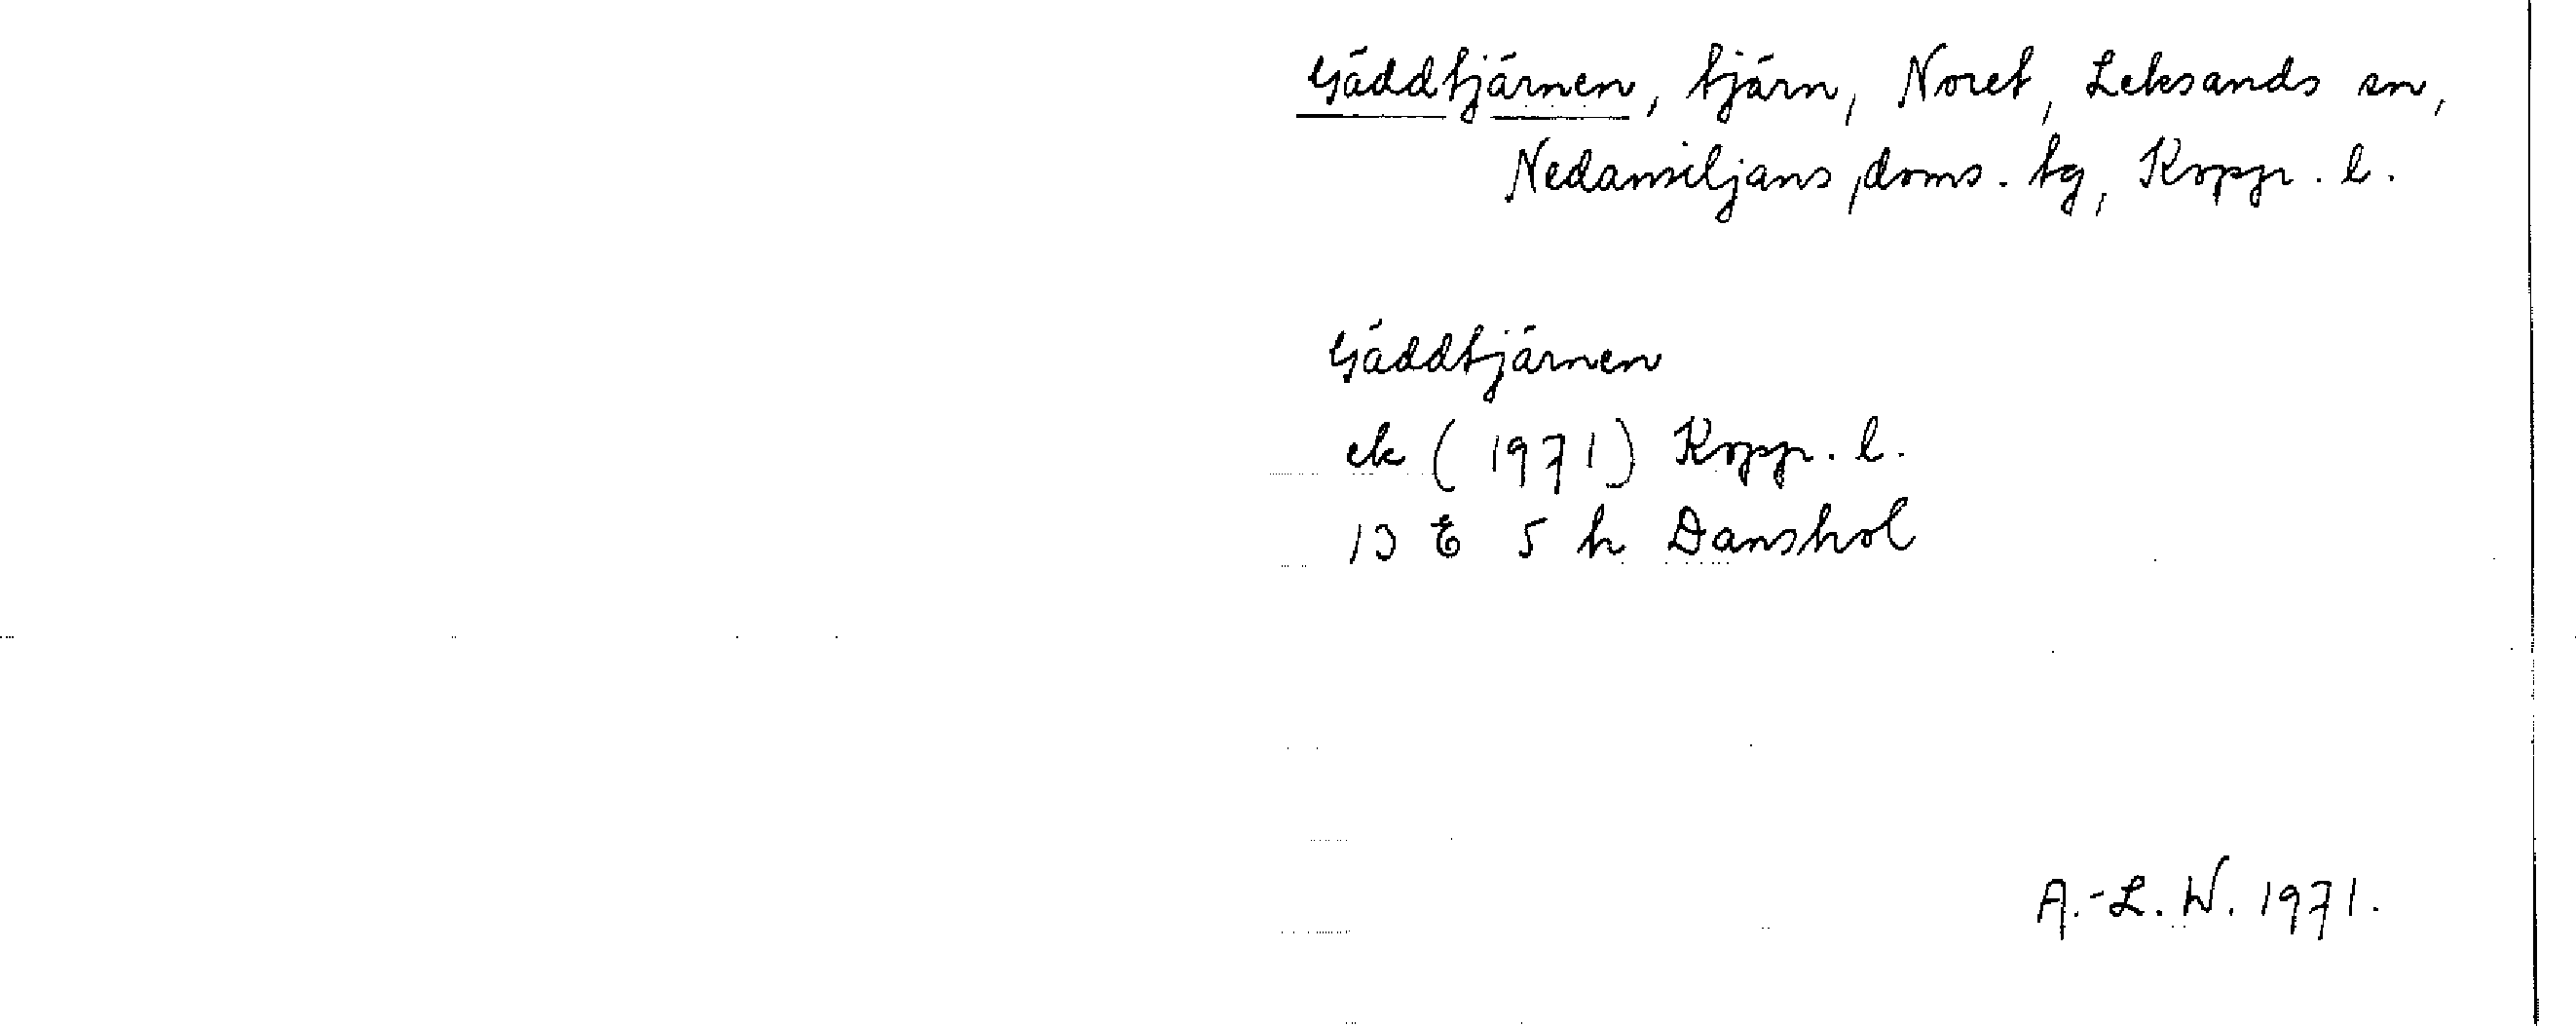 Gäddtjärnen, tjärn, Noret, Leksands sn,
Nedansiljans doms. tg, Kopp. l.
Gäddtjärnen
ek (1971) Kopp. l.
13 E 5 h Danshol
A.-L. W. 1971.